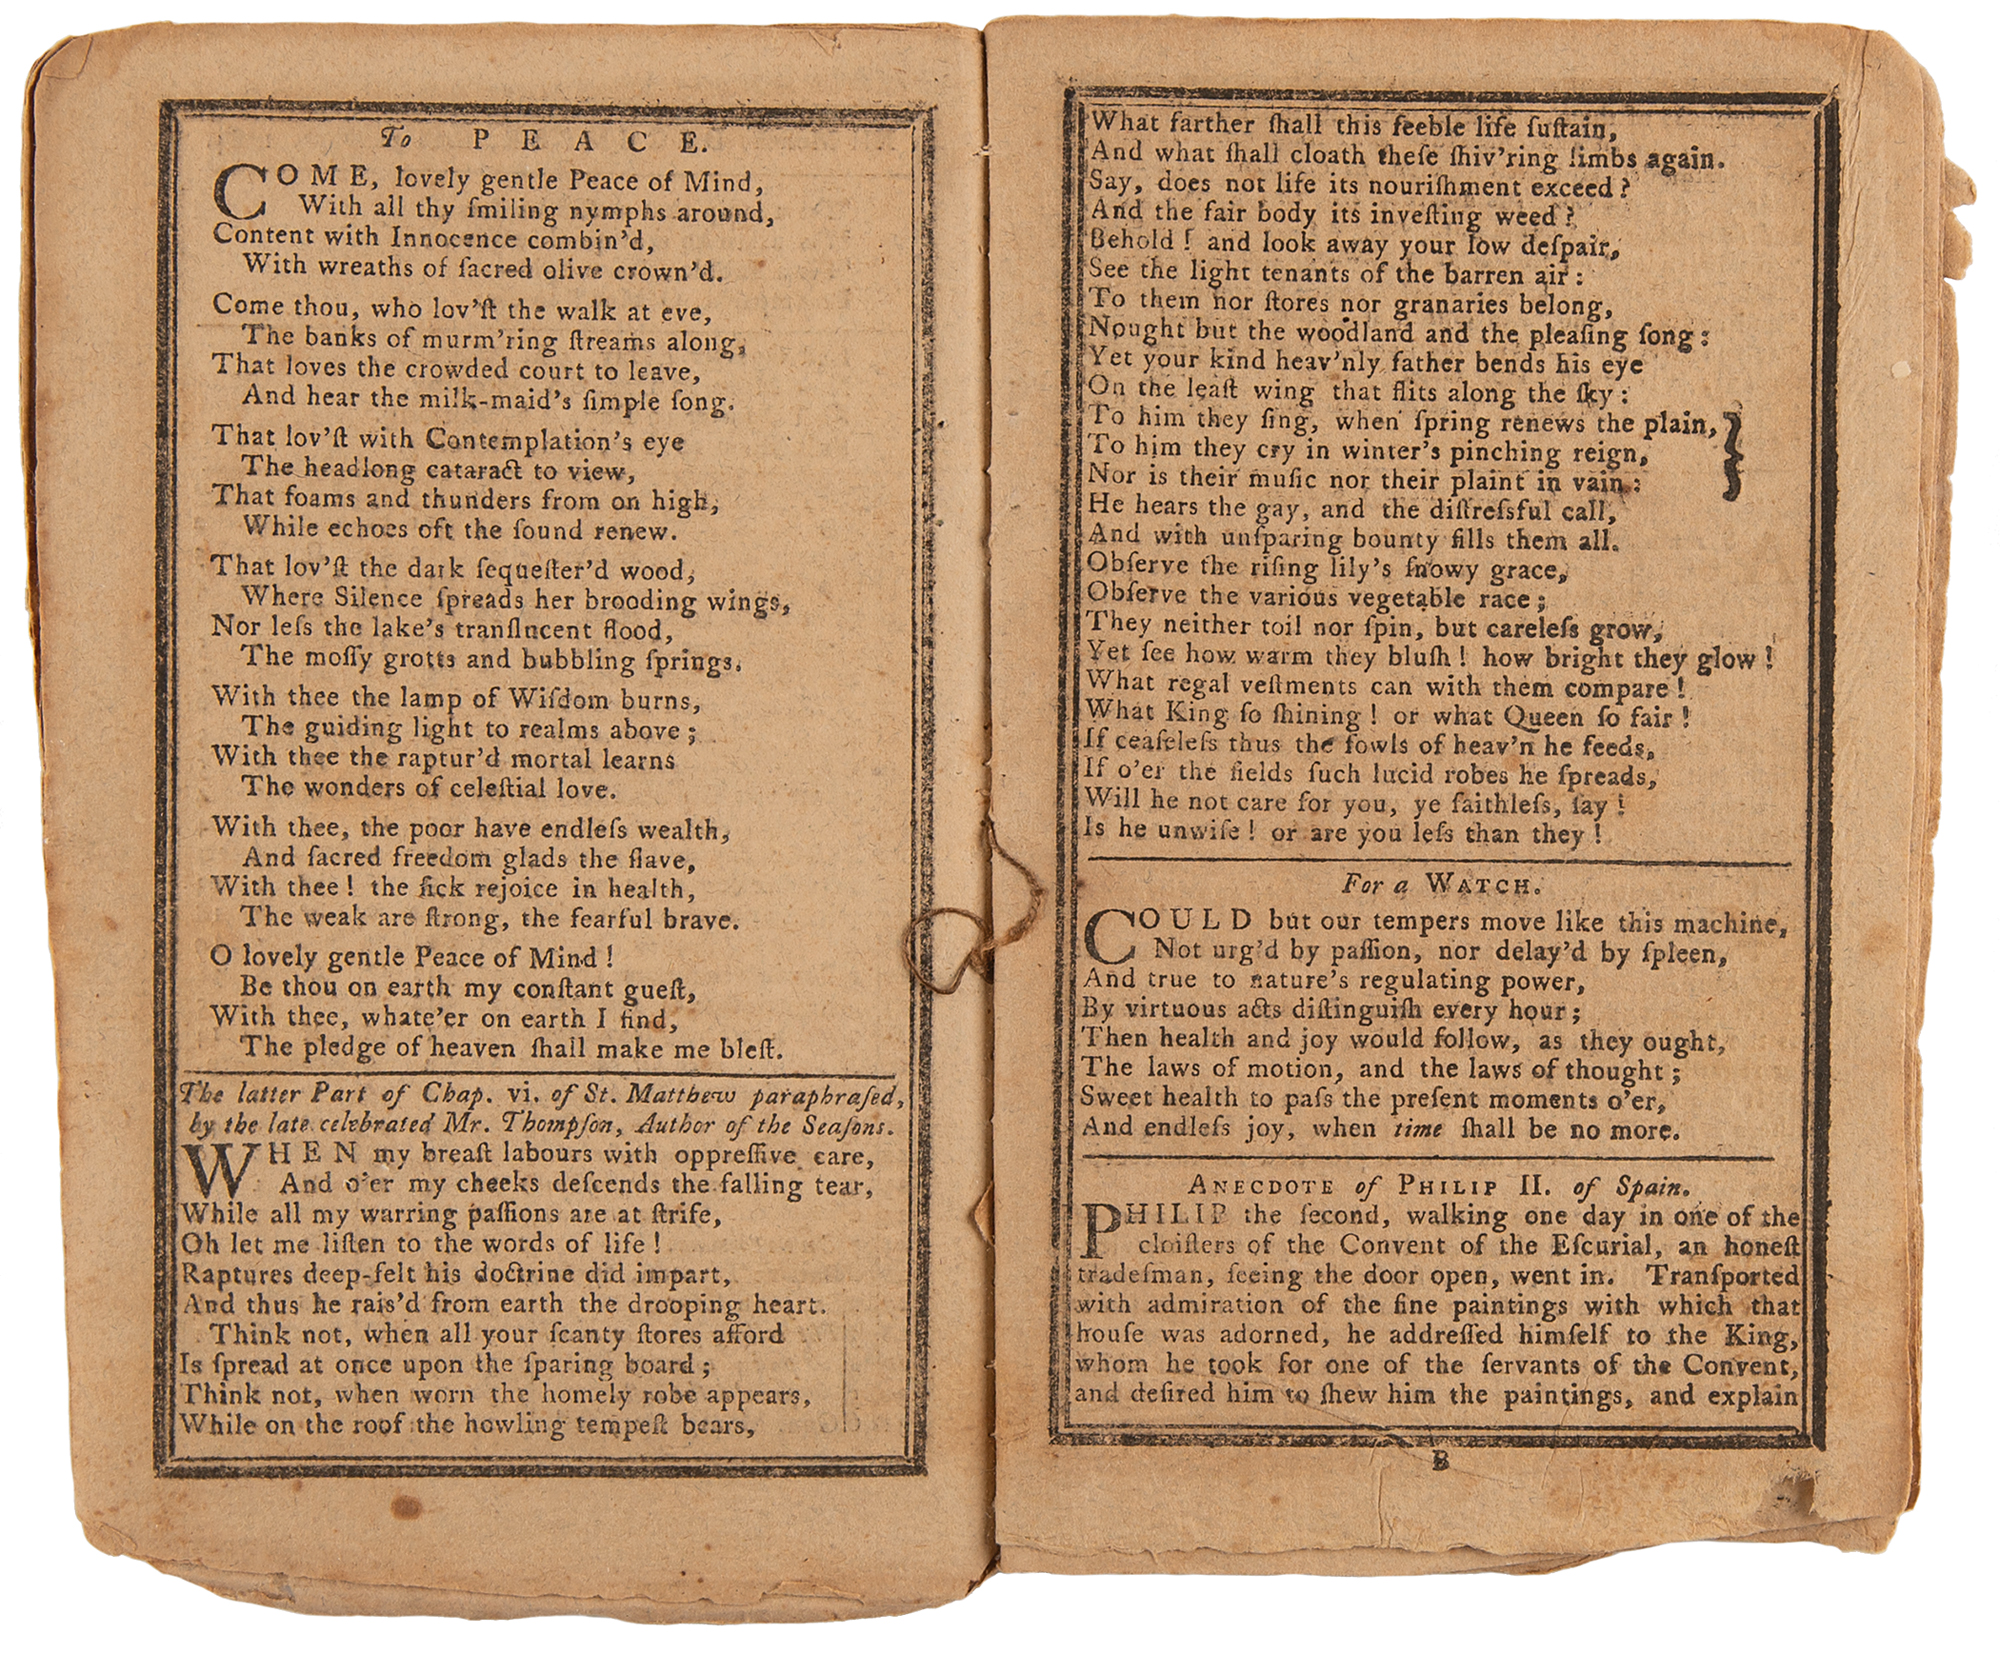 To PEACE.
COME, lovely gentle Peace of Mind,
With all thy ſmiling nymphs around,
Content with Innocence combin'd,
With wreaths of ſacred olive crown'd.
Come thou, who lov'ſt the walk at eve,
The banks of murm'ring ſtreams along,
That loves the crowded court to leave,
And hear the milk-maid's ſimple ſong.
That lov'ſt with Contemplation's eye
The headlong cataract to view,
That foams and thunders from on high,
While echoes oft the ſound renew.
That lov'ſt the dark ſequeſter'd wood,
Where Silence ſpreads her brooding wings,
Nor leſs the lake's tranſlucent flood,
The moſſy grotts and bubbling ſprings.
With thee the lamp of Wiſdom burns,
The guiding light to realms above;
With thee the raptur'd mortal learns
The wonders of celeſtial love.
With thee, the poor have endleſs wealth,
And ſacred freedom glads the ſlave,
With thee! the ſick rejoice in health,
The weak are ſtrong, the fearful brave.
O lovely gentle Peace of Mind!
Be thou on earth my conſtant gueſt,
With thee, whate'er on earth I find,
The pledge of heaven ſhall make me bleſt.
The latter Part of Chap. vi. of St. Matthew paraphraſed,
by the late celebrated Mr. Thompſon, Author of the Seaſons.
WHEN my breaſt labours with oppreſſive care,
And o'er my cheeks deſcends the falling tear,
While all my warring paſſions are at ſtrife,
Oh let me liſten to the words of life!
Raptures deep-felt his doctrine did impart,
And thus he rais'd from earth the drooping heart.
Think not, when all your ſcanty ſtores afford
Is ſpread at once upon the ſparing board;
Think not, when worn the homely robe appears,
While on the roof the howling tempeſt bears,
What farther ſhall this feeble life ſuſtain,
And what ſhall cloath theſe ſhiv'ring limbs again.
Say, does not life its nouriſhment exceed?
And the fair body its inveſting weed?
Behold! and look away your low deſpair,
See the light tenants of the barren air:
To them nor ſtores nor granaries belong,
Nought but the woodland and the pleaſing ſong:
Yet your kind heav'nly father bends his eye
On the leaſt wing that flits along the ſky:
To him they ſing, when ſpring renews the plain,
To him they cry in winter's pinching reign,
Nor is their muſic nor their plaint in vain:
He hears the gay, and the diſtreſsful call,
And with unſparing bounty fills them all.
Obſerve the riſing lily's ſnowy grace,
Obſerve the various vegetable race;
They neither toil nor ſpin, but careleſs grow,
Yet ſee how warm they bluſh! how bright they glow!
What regal veſtments can with them compare!
What King ſo ſhining! or what Queen ſo fair!
If ceaſeleſs thus the fowls of heav'n he feeds,
If o'er the fields ſuch lucid robes he ſpreads,
Will he not care for you, ye faithleſs, ſay!
Is he unwiſe! or are you leſs than they!
For a WATCH.
COULD but our tempers move like this machine,
Not urg'd by paſſion, nor delay'd by ſpleen,
And true to nature's regulating power,
By virtuous acts diſtinguiſh every hour;
Then health and joy would follow, as they ought,
The laws of motion, and the laws of thought;
Sweet health to paſs the preſent moments o'er,
And endleſs joy, when time ſhall be no more.
ANECDOTE of PHILIP II. of Spain.
PHILIP the ſecond, walking one day in one of the
cloiſters of the Convent of the Eſcurial, an honeſt
tradeſman, ſeeing the door open, went in. Tranſported
with admiration of the fine paintings with which that
houſe was adorned, he addreſſed himſelf to the King,
whom he took for one of the ſervants of the Convent,
and deſired him to ſhew him the paintings, and explain
B